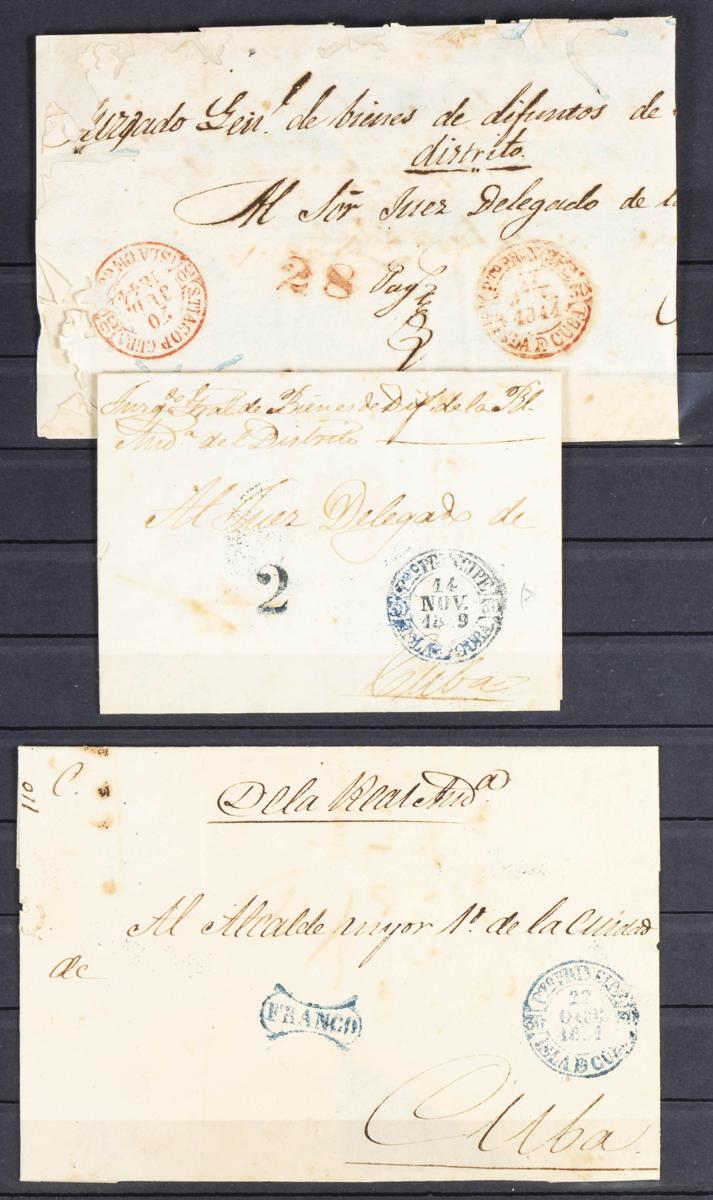 Juzgado Genl. de bienes de difuntos de
distrito.
Al Sor Juez Delegado de la
S.TIAGO D CUBA
ISLA D CUBA
20
1844
28
PTO. PRINCIPE
1844
ISLA D CUBA
Juzgdo. Gral de Bienes de Dif. de la Rl.
Auda. del Distrito
Al Juez Delegado de
2
PTO. PRINCIPE
14
NOV.
ISLA D CUBA
Cuba
110
C.
De la Real Auda.
Al Alcalde mayor 1o. de la Ciudad
de
FRANCO
PTO. PRINCIPE
22
ISLA D CUBA
Cuba.